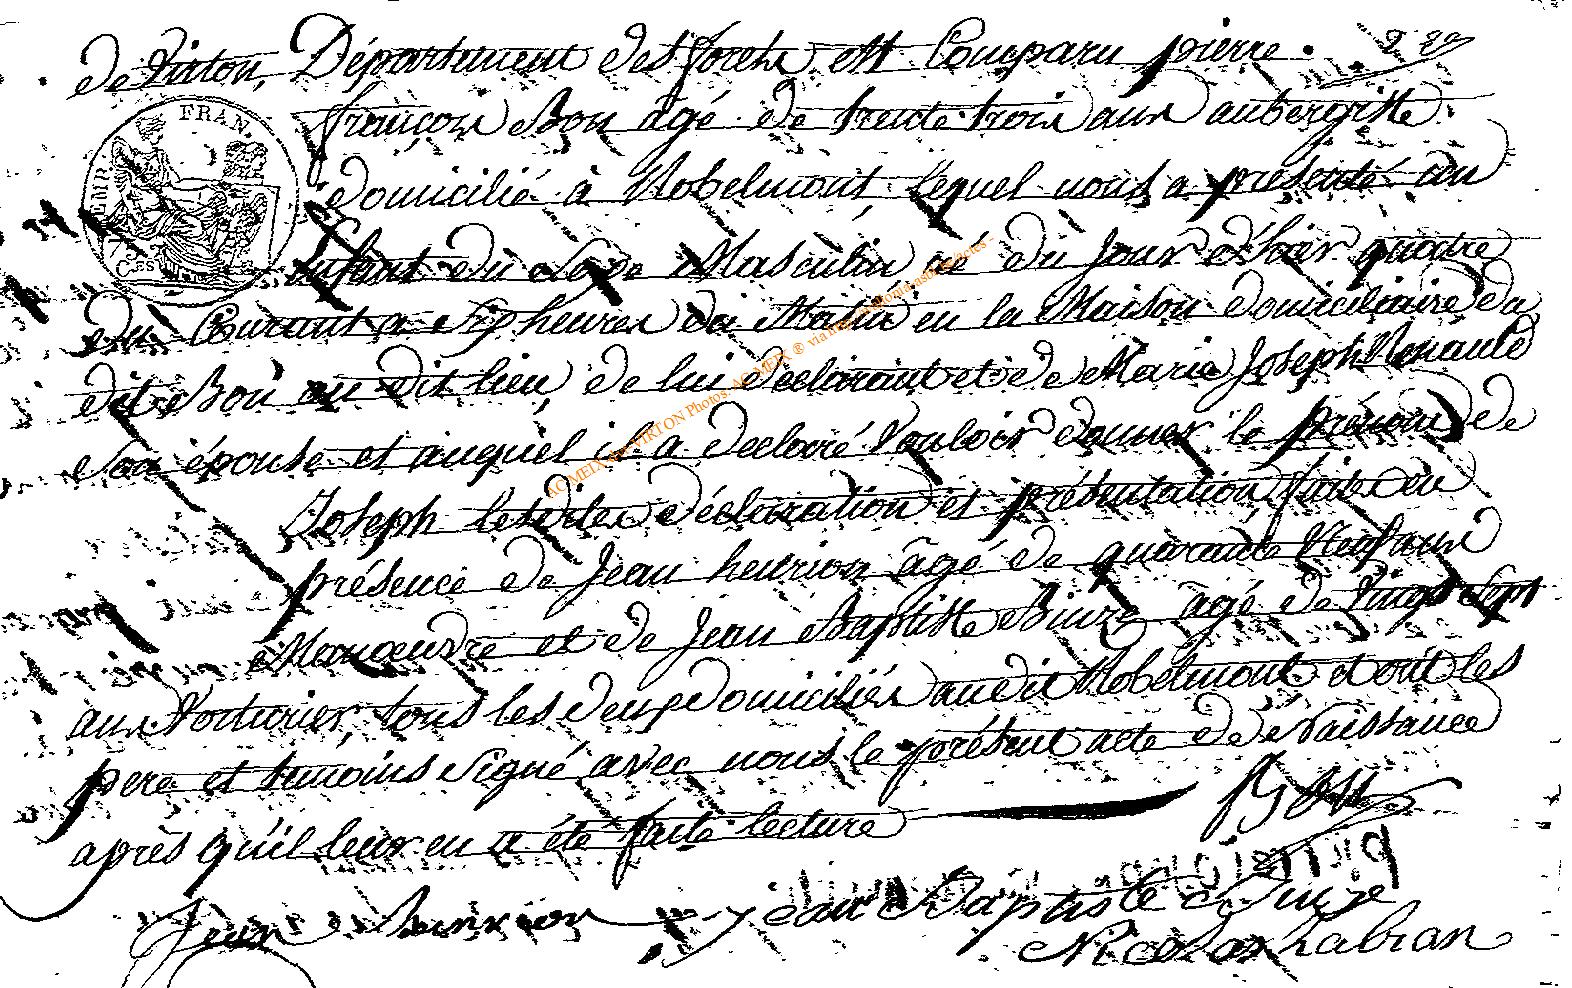 de Virton, Département des forets est Comparu pierre
françois Bon agé de trente trois ans aubergiste
domicilié à Robelmont, lequel nous a présenté un
Enfant du Sexe Masculin né du Jour d'hier quatre
du Courant a Six heures du Matin en la Maison domiciliaire du
dit Bon au dit lieu, de lui declarant et de Marie Joseph Renauld
Son épouse et auquel il a declaré Vouloir donner le prénom de
Joseph lesdites déclaration et présentation faites en
présence de Jean henrion âgé de quarante Neuf ans
Manœuvre et de Jean Baptiste agé de Vingt Sept
ans Voiturier, tous les deux domiciliés audit Robelmont et ont les
pere et temoins Signé avec nous le présent acte de Naissance
après qu'il leur en a été faite lecture
Jean henrion jean Baptiste
Nicolas Labran
FRAN.
EMP.
AC MEIX dvt VIRTON Photos. AC MEIX ® via